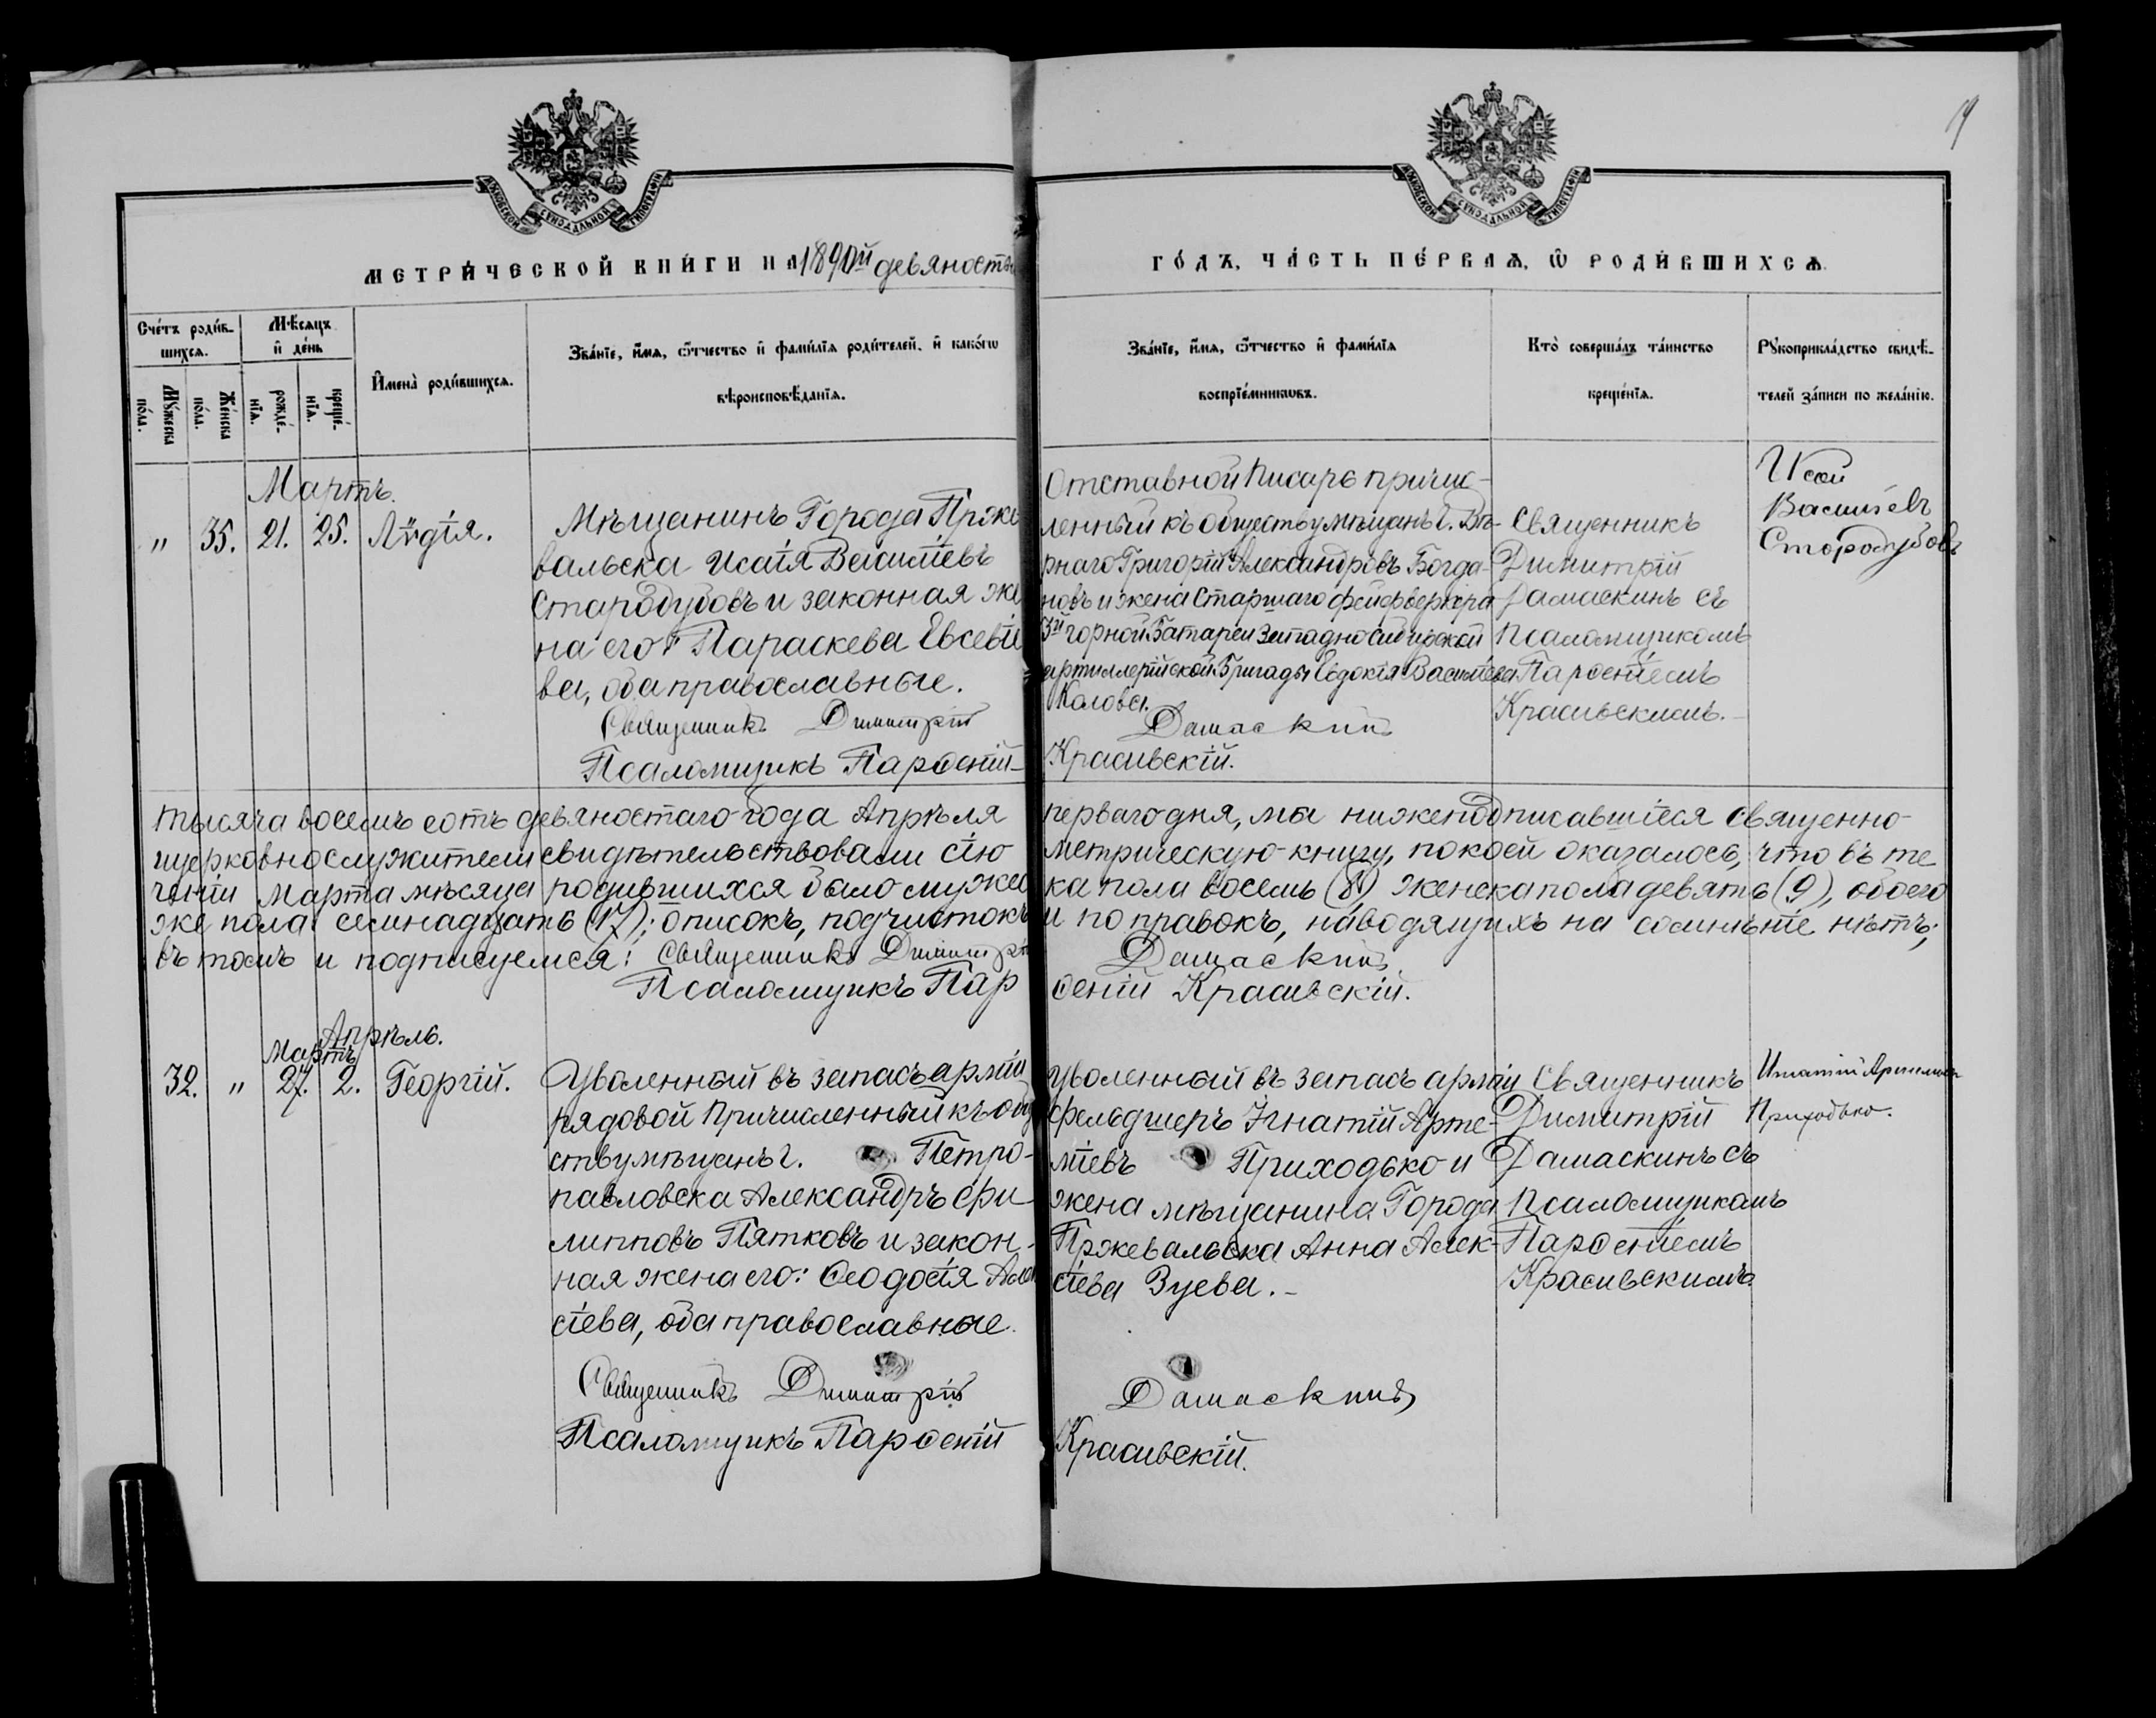 19
МЕТРИ́ЧЕСКОЙ КНИ́ГИ НА 1890й девяносты
ГО́ДЪ, ЧА́СТЬ ПЕ́РВАѦ, Ѿ РОДИ́ВШИХСѦ.
Сче́тъ роди́в-
шихсѧ.
Мѣ́сѧцъ
и де́нь
Мꙋ́жеска
по́ла.
Же́нска
по́ла.
рожде́-
нїѧ.
креще́-
нїѧ.
Имена̀ роди́вшихсѧ.
Зва́нїе, и́мѧ, ѻ́тчество и фами́лїѧ роди́телей, и како́гѡ
вѣроисповѣ́данїѧ.
Зва́нїе, и́мѧ, ѻ́тчество и фами́лїѧ
воспрїе́мникѡвъ.
Кто̀ соверша́лъ та́инство
креще́нїѧ.
Рꙋкоприкла́дство свидѣ́-
телей за́писи по жела́нїю.
Мартъ.
" 35. 21. 25. Лѵдія.
Мѣщанинъ Города Прже
вальска Исаія Василіевъ
Стародубовъ и законная же
на его Параскева Евсевіе
ва, оба православные.
Священникъ Димитрій
Псаломщикъ Парѳеній
Отставной Писарь причис-
ленный къ обществу мѣщанъ г. Вѣ-
рнаго Григорій Александровъ Богда-
новъ и жена Старшаго фейерверкера
3й горной Батареи Западно Сибирской
артиллерійской Бригады Евдокія Василіева
Колова.
Дамаскинъ
Красивскій.
Священникъ
Димитрій
Дамаскинъ съ
Псаломщикомъ
Парѳеніемъ
Красивскимъ.
Исай
Василіевъ
Стародубовъ
тысяча восемь сотъ девяностаго года Апрѣля перваго дня, мы нижеподписавшіеся священно-
церковнослужители свидѣтельствовали сію метрическую книгу, по коей оказалось, что въ те
ченіи Марта мѣсяца родившихся было мужес ка пола восемь (8), женска пола девять (9), обоего
же пола семнадцать (17); описокъ, подчистокъ и поправокъ, наводящихъ на сомнѣніе нѣтъ;
въ томъ и подписуемся: Священникъ Димитрій Дамаскинъ
Псаломщикъ Пар ѳеній Красивскій.
Апрѣль.
Мартъ
32. " 27. 2. Георгій.
Уволенный въ запасъ арміи
рядовой причисленный къ общ
ству мѣщанъ г. Петро-
павловска Александръ Фи
липповъ Пятковъ и закон-
ная жена его: Ѳеодосія Але
сіева, оба православные.
Священникъ Димитрій
Псаломщикъ Парѳеній
Уволенный въ запасъ арміи
фельдшеръ Игнатій Арте-
міевъ Приходько и
жена мѣщанина Города
Пржевальска Анна Алек-
сіева Зуева.
Дамаскинъ
Красивскій.
Священникъ
Димитрій
Дамаскинъ съ
Псаломщикомъ
Парѳеніемъ
Красивскимъ
Игнатій Артемьевъ
Приходько.